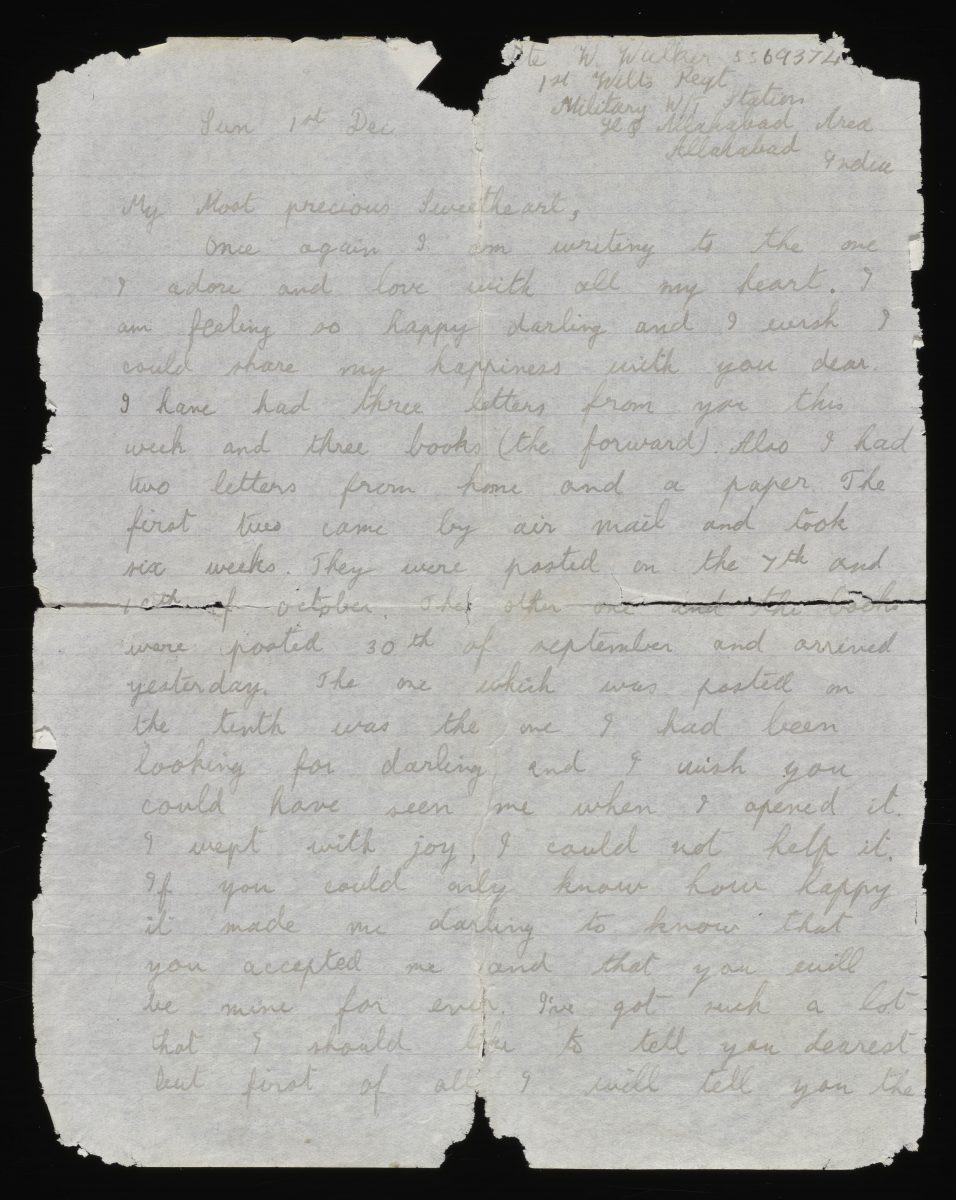 Pte W. Walker 5569374
1st Wilts Regt
Military W/T Station
HQ Allahabad Area
Allahabad
India
Sun 1st Dec
My Most precious Sweetheart,
Once again I am writing to the one
I adore and love with all my heart. I
am feeling so happy darling and I wish I
could share my happiness with you dear.
I have had three letters from you this
week and three books (the forward). Also I had
two letters from home and a paper. The
first two came by air mail and took
six weeks. They were posted on the 7th and
10th of october. The other one and the books
were posted 30th of september and arrived
yesterday. The one which was posted on
the tenth was the one I had been
looking for darling and I wish you
could have seen me when I opened it.
I wept with joy, I could not help it.
If you could only know how happy
it made me darling to know that
you accepted me and that you will
be mine for ever. I've got such a lot
that I should like to tell you dearest
but first of all I will tell you the